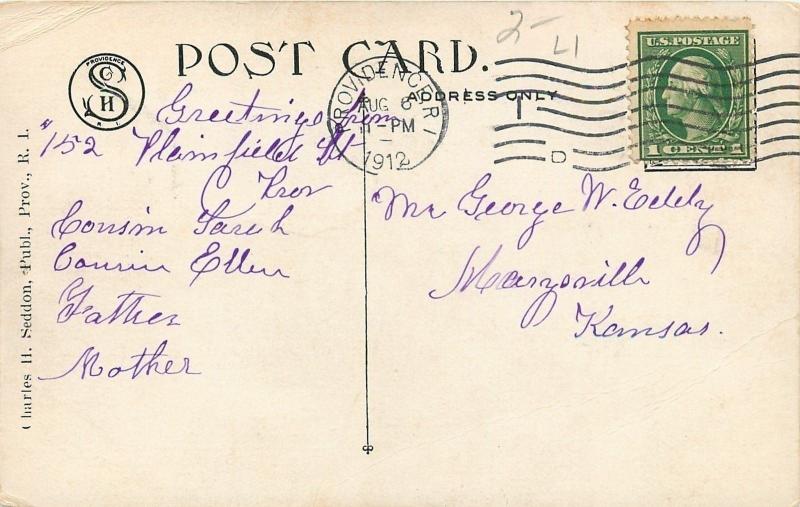 POST CARD.
2- 21
U.S. POSTAGE
1 CENT 1
PROVIDENCE
S G H
R I
PROVIDENCE R I
AUG 6
11-PM
1912
ADDRESS ONLY
D
Greetings from
152 Plainfield St
Prov
Cousin Sarah
Cousin Ellen
Father
Mother
Mr George W. Eddy
Marysville
Kansas.
Charles H. Seddon, Publ., Prov., R. I.